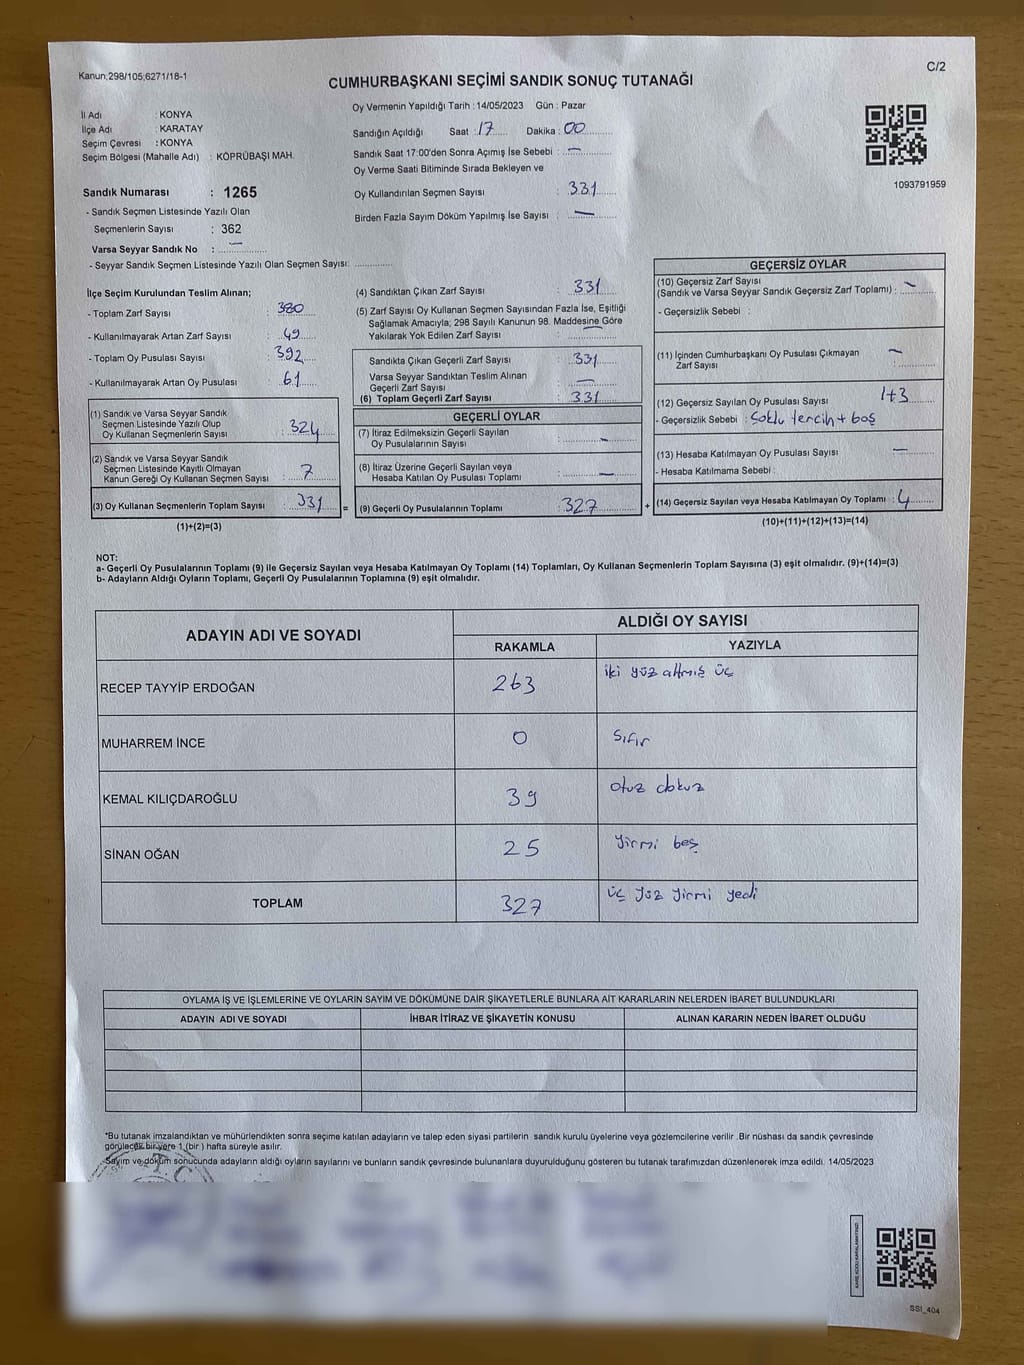 Kanun;298/105;6271/18-1
C/2
CUMHURBAŞKANI SEÇİMİ SANDIK SONUÇ TUTANAĞI
İl Adı : KONYA
İlçe Adı : KARATAY
Seçim Çevresi : KONYA
Seçim Bölgesi (Mahalle Adı) : KÖPRÜBAŞI MAH.
Sandık Numarası : 1265
- Sandık Seçmen Listesinde Yazılı Olan
Seçmenlerin Sayısı : 362
Varsa Seyyar Sandık No : —
- Seyyar Sandık Seçmen Listesinde Yazılı Olan Seçmen Sayısı:
Oy Vermenin Yapıldığı Tarih : 14/05/2023 Gün : Pazar
Sandığın Açıldığı Saat : 17 Dakika : 00
Sandık Saat 17:00'den Sonra Açımış İse Sebebi : —
Oy Verme Saati Bitiminde Sırada Bekleyen ve
Oy Kullandırılan Seçmen Sayısı : 331
Birden Fazla Sayım Döküm Yapılmış İse Sayısı : —
1093791959
İlçe Seçim Kurulundan Teslim Alınan;
- Toplam Zarf Sayısı : 380
- Kullanılmayarak Artan Zarf Sayısı : 49
- Toplam Oy Pusulası Sayısı : 392
- Kullanılmayarak Artan Oy Pusulası : 61
(1) Sandık ve Varsa Seyyar Sandık
Seçmen Listesinde Yazılı Olup
Oy Kullanan Seçmenlerin Sayısı : 324
(2) Sandık ve Varsa Seyyar Sandık
Seçmen Listesinde Kayıtlı Olmayan
Kanun Gereği Oy Kullanan Seçmen Sayısı : 7
(3) Oy Kullanan Seçmenlerin Toplam Sayısı : 331 =
(1)+(2)=(3)
(4) Sandıktan Çıkan Zarf Sayısı : 331
(5) Zarf Sayısı Oy Kullanan Seçmen Sayısından Fazla İse, Eşitliği
Sağlamak Amacıyla, 298 Sayılı Kanunun 98. Maddesine Göre
Yakılarak Yok Edilen Zarf Sayısı : —
Sandıkta Çıkan Geçerli Zarf Sayısı : 331
Varsa Seyyar Sandıktan Teslim Alınan
Geçerli Zarf Sayısı : —
(6) Toplam Geçerli Zarf Sayısı : 331
GEÇERLİ OYLAR
(7) İtiraz Edilmeksizin Geçerli Sayılan
Oy Pusulalarının Sayısı : —
(8) İtiraz Üzerine Geçerli Sayılan veya
Hesaba Katılan Oy Pusulası Toplamı : —
(9) Geçerli Oy Pusulalarının Toplamı : 327 +
GEÇERSİZ OYLAR
(10) Geçersiz Zarf Sayısı
(Sandık ve Varsa Seyyar Sandık Geçersiz Zarf Toplamı) : —
- Geçersizlik Sebebi :
(11) İçinden Cumhurbaşkanı Oy Pusulası Çıkmayan
Zarf Sayısı : —
(12) Geçersiz Sayılan Oy Pusulası Sayısı 1+3
- Geçersizlik Sebebi : Çoklu tercih + boş
(13) Hesaba Katılmayan Oy Pusulası Sayısı : —
- Hesaba Katılmama Sebebi :
(14) Geçersiz Sayılan veya Hesaba Katılmayan Oy Toplamı : 4
(10)+(11)+(12)+(13)=(14)
NOT:
a- Geçerli Oy Pusulalarının Toplamı (9) ile Geçersiz Sayılan veya Hesaba Katılmayan Oy Toplamı (14) Toplamları, Oy Kullanan Seçmenlerin Toplam Sayısına (3) eşit olmalıdır. (9)+(14)=(3)
b- Adayların Aldığı Oyların Toplamı, Geçerli Oy Pusulalarının Toplamına (9) eşit olmalıdır.
ADAYIN ADI VE SOYADI ALDIĞI OY SAYISI
RAKAMLA YAZIYLA
RECEP TAYYİP ERDOĞAN 263 iki yüz altmış üç
MUHARREM İNCE 0 Sıfır
KEMAL KILIÇDAROĞLU 39 otuz dokuz
SİNAN OĞAN 25 Yirmi beş
TOPLAM 327 üç yüz yirmi yedi
OYLAMA İŞ VE İŞLEMLERİNE VE OYLARIN SAYIM VE DÖKÜMÜNE DAİR ŞİKAYETLERLE BUNLARA AİT KARARLARIN NELERDEN İBARET BULUNDUKLARI
ADAYIN ADI VE SOYADI İHBAR İTİRAZ VE ŞİKAYETİN KONUSU ALINAN KARARIN NEDEN İBARET OLDUĞU
*Bu tutanak imzalandıktan ve mühürlendikten sonra seçime katılan adayların ve talep eden siyasi partilerin sandık kurulu üyelerine veya gözlemcilerine verilir .Bir nüshası da sandık çevresinde
görülecek bir yere 1 (bir ) hafta süreyle asılır.
-Sayım ve döküm sonucunda adayların aldığı oyların sayılarını ve bunların sandık çevresinde bulunanlara duyurulduğunu gösteren bu tutanak tarafımızdan düzenlenerek imza edildi. 14/05/2023
T.C.
KARE KODU KARALAMAYINIZ!
SSI_404